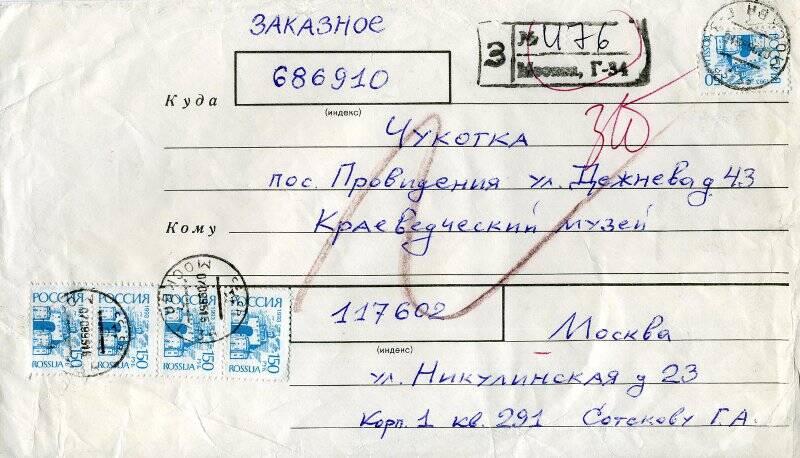 ЗАКАЗНОЕ
З № 476
Москва, Г-34
686910
Куда
(индекс)
Чукотка
пос. Провидения ул. Дежнева д. 43
Кому
Краеведческий музей
РОССИЯ РОССИЯ РОССИЯ РОССИЯ
150 150 150 150
ROSSIJA ROSSIJA ROSSIJA ROSSIJA
МОСКВА
117602
(индекс)
Москва
ул. Никулинская д 23
Корп. 1 кв. 291 Сотскову Г. А.